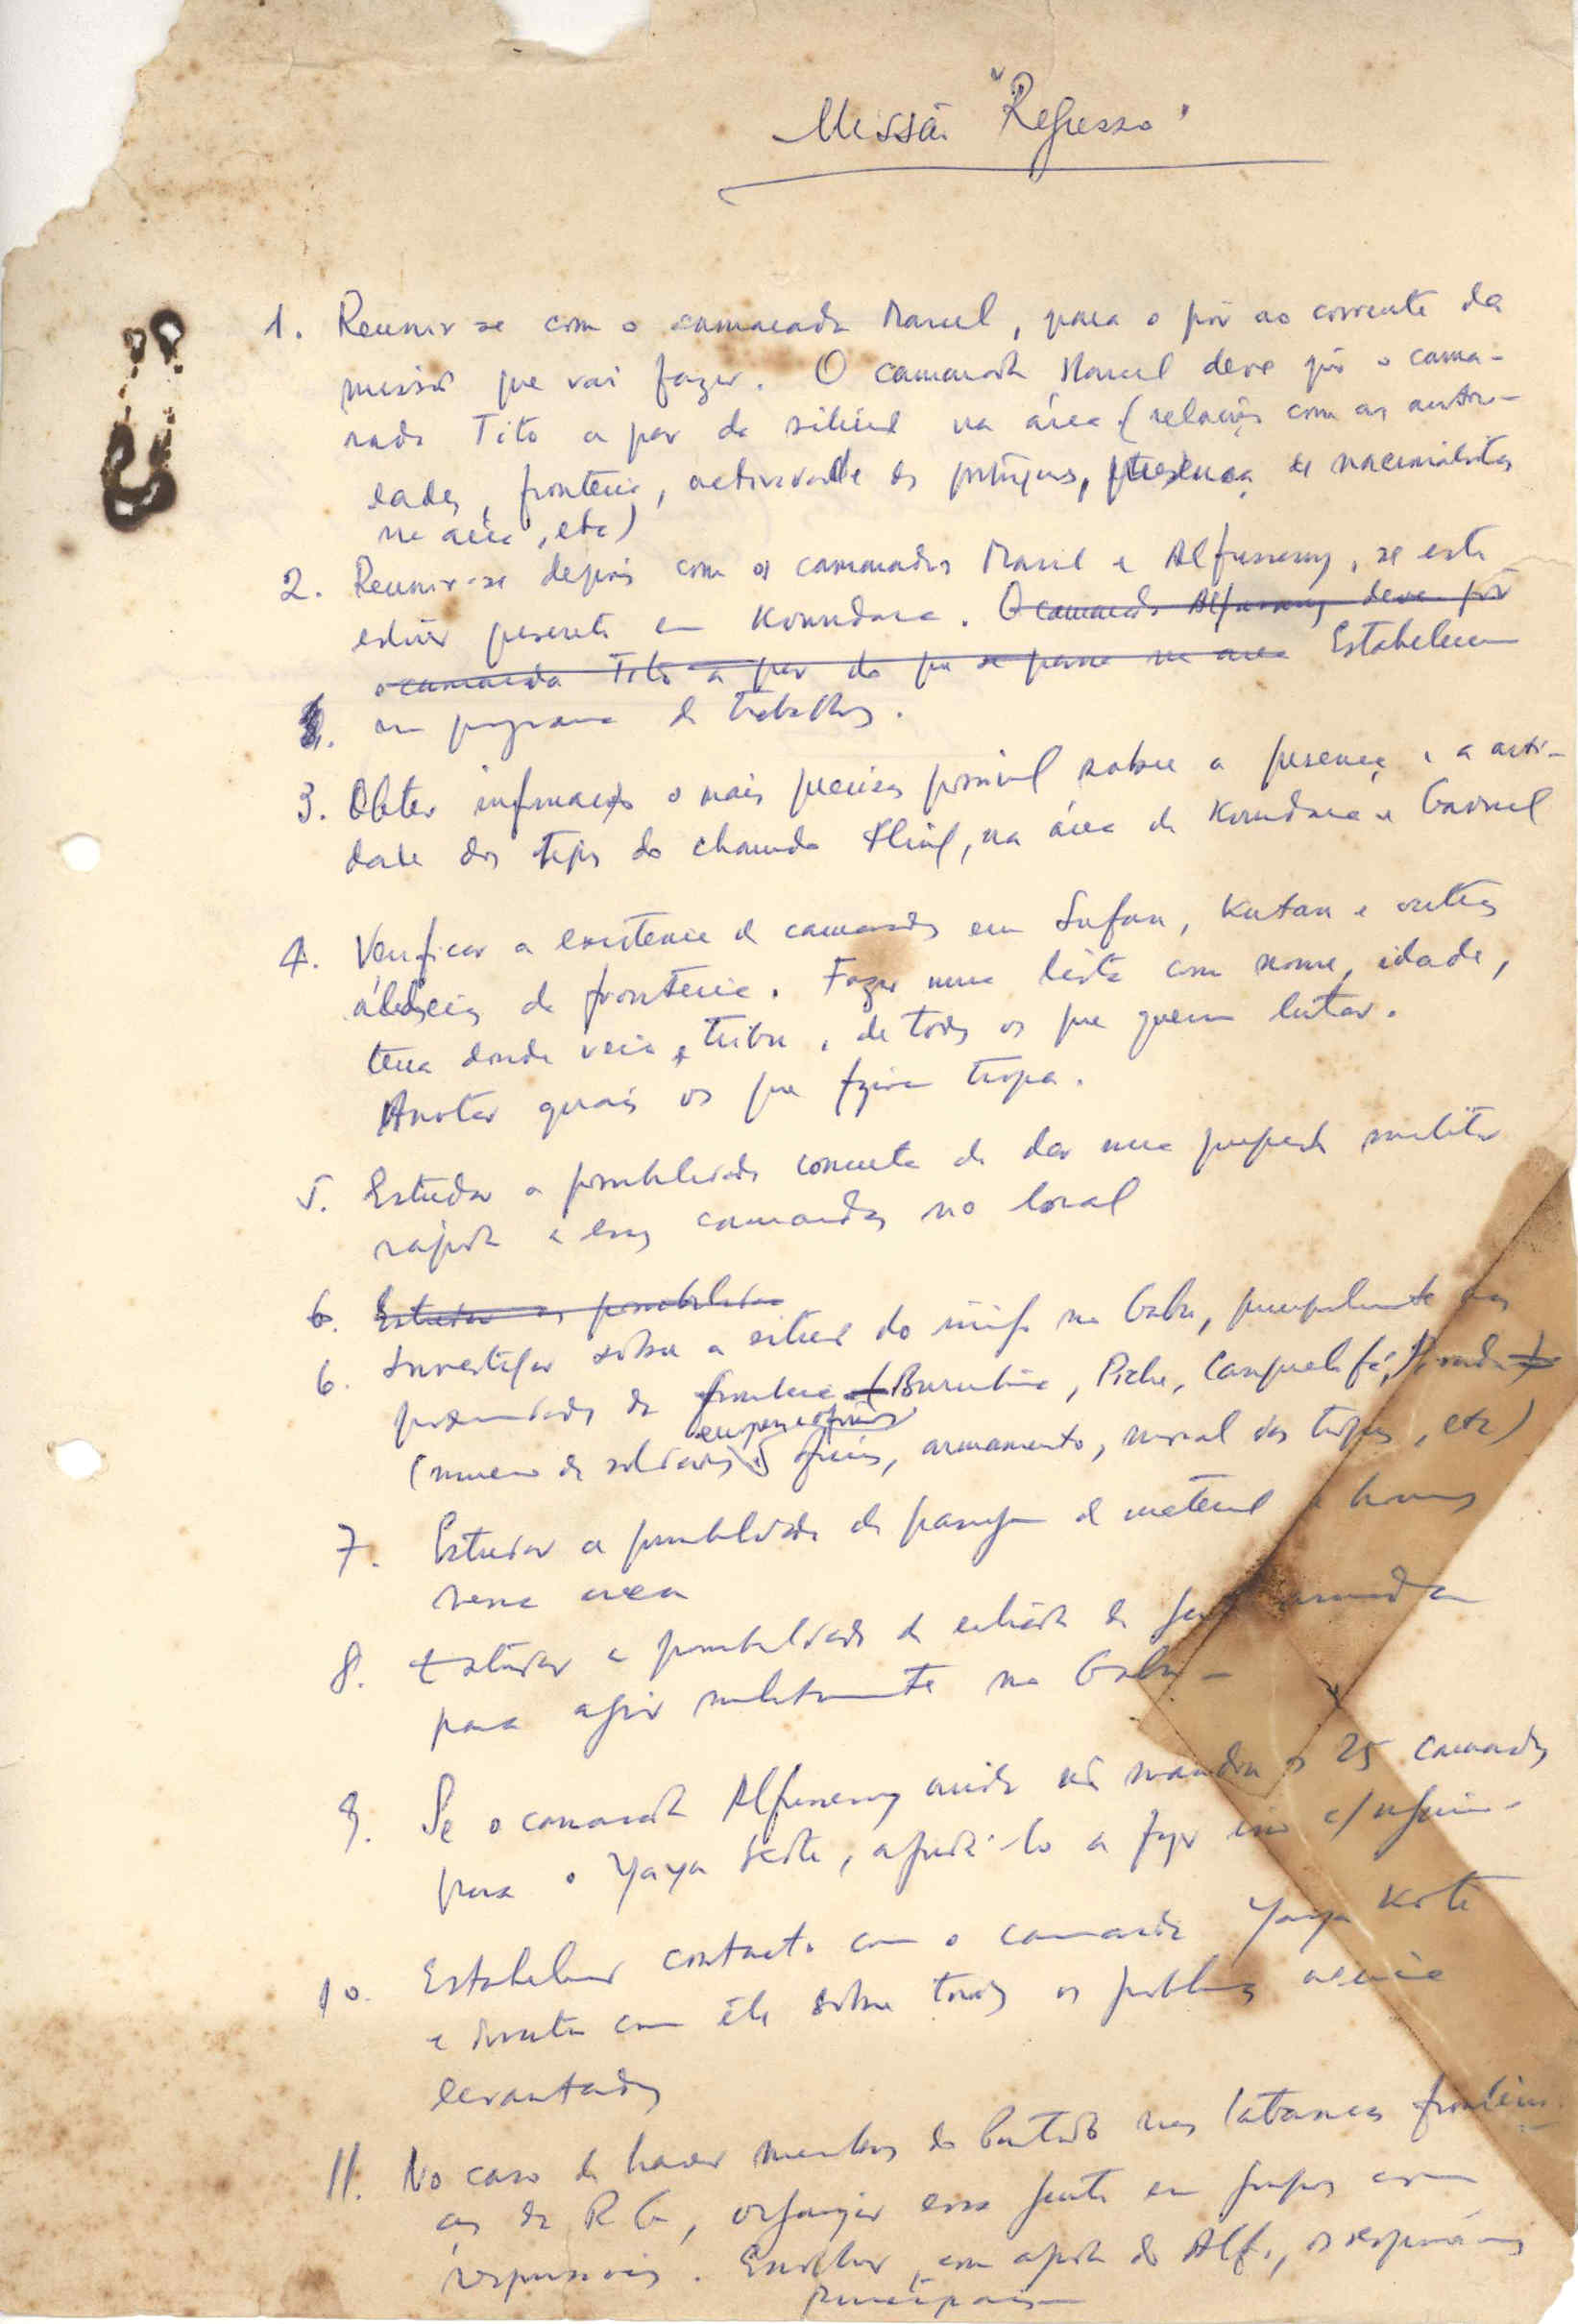 Missão "Regresso"
1. Reunir-se com o camarada Marcel, para o pôr ao corrente da
missão que vai fazer. O camarada Marcel deve pôr o cama-
rada Tito a par da situação na área (relações com as autori-
dades, fronteira, actividade dos portugueses, presença de nacionalistas
na área, etc)
2. Reunir-se depois com os camaradas Marcel e Alfusseny, se este
estiver presente em Koundara. O camarada Alfusseny deve pôr
o camarada Tito a par do que se passa na area Estabelecer
um programa de trabalhos.
3. Obter informações o mais precisas possível sobre a presença e a activi-
dade dos tipos do chamado Fling, na área de Koundara e Gaoual
4. Verificar a existencia de camaradas em Sufan, Kutan e outras
aldeias da fronteira. Fazer uma lista com nome, idade,
terra donde veio, tribu, de todos os que querem lutar.
Anotar quais os que fizeram tropa.
5. Estudar a possibilidade concreta de dar uma preparação militar
rápida a esses camaradas no local
6. Estudar as possibilidades
6. Investigar sobre a situação do inimigo no Gabu, principalmente nas
proximidades da fronteira (Buruntuma, Piche, Canquelifá, Pirada)
(numero de soldados europeus e oficiais, armamento, moral das tropas, etc)
7. Estudar a possibilidade de passagem de material e homens
nessa area
8. Estudar a possibilidade de entrada de gente armada
para agir militarmente no Gabu -
9. Se o camarada Alfusseny ainda não mandou os 25 camaradas
para o Yaya Koté, ajudá-lo a fazer isso c/ urgência
10. Estabelecer contacto com o camarada Yaya Koté
e discutir com êle sobre todos os problemas acima
levantados
11. No caso de haver membros do Partido nas tabancas fronteiri-
ças da R G, organizar essa gente em grupos com
responsáveis. Escolher, com ajuda do Alf., os responsáveis
principais